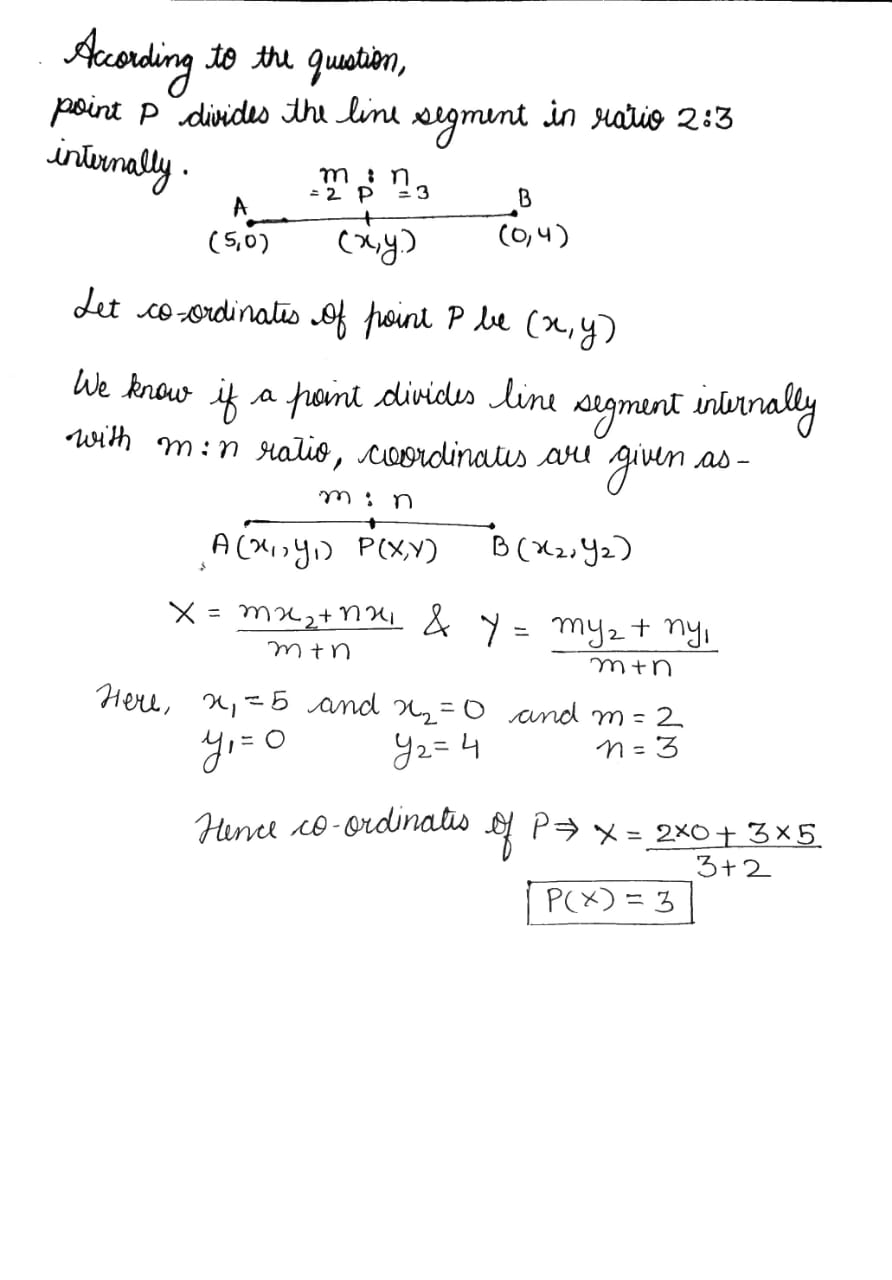 According to the question,
point P divides the line segment in ratio 2:3
internally.
m : n
=2 P =3
A B
(5,0) (x,y) (0,4)
Let co-ordinates of point P be (x,y)
We know if a point divides line segment internally
with m:n ratio, coordinates are given as -
m : n
A(x₁,y₁) P(X,Y) B(x₂,y₂)
X = mx₂+nx₁ & Y = my₂+ny₁
m+n m+n
Here, x₁=5 and x₂=0 and m=2
y₁=0 y₂=4 n=3
Hence co-ordinates of P⇒ X = 2×0+3×5
3+2
P(X) = 3